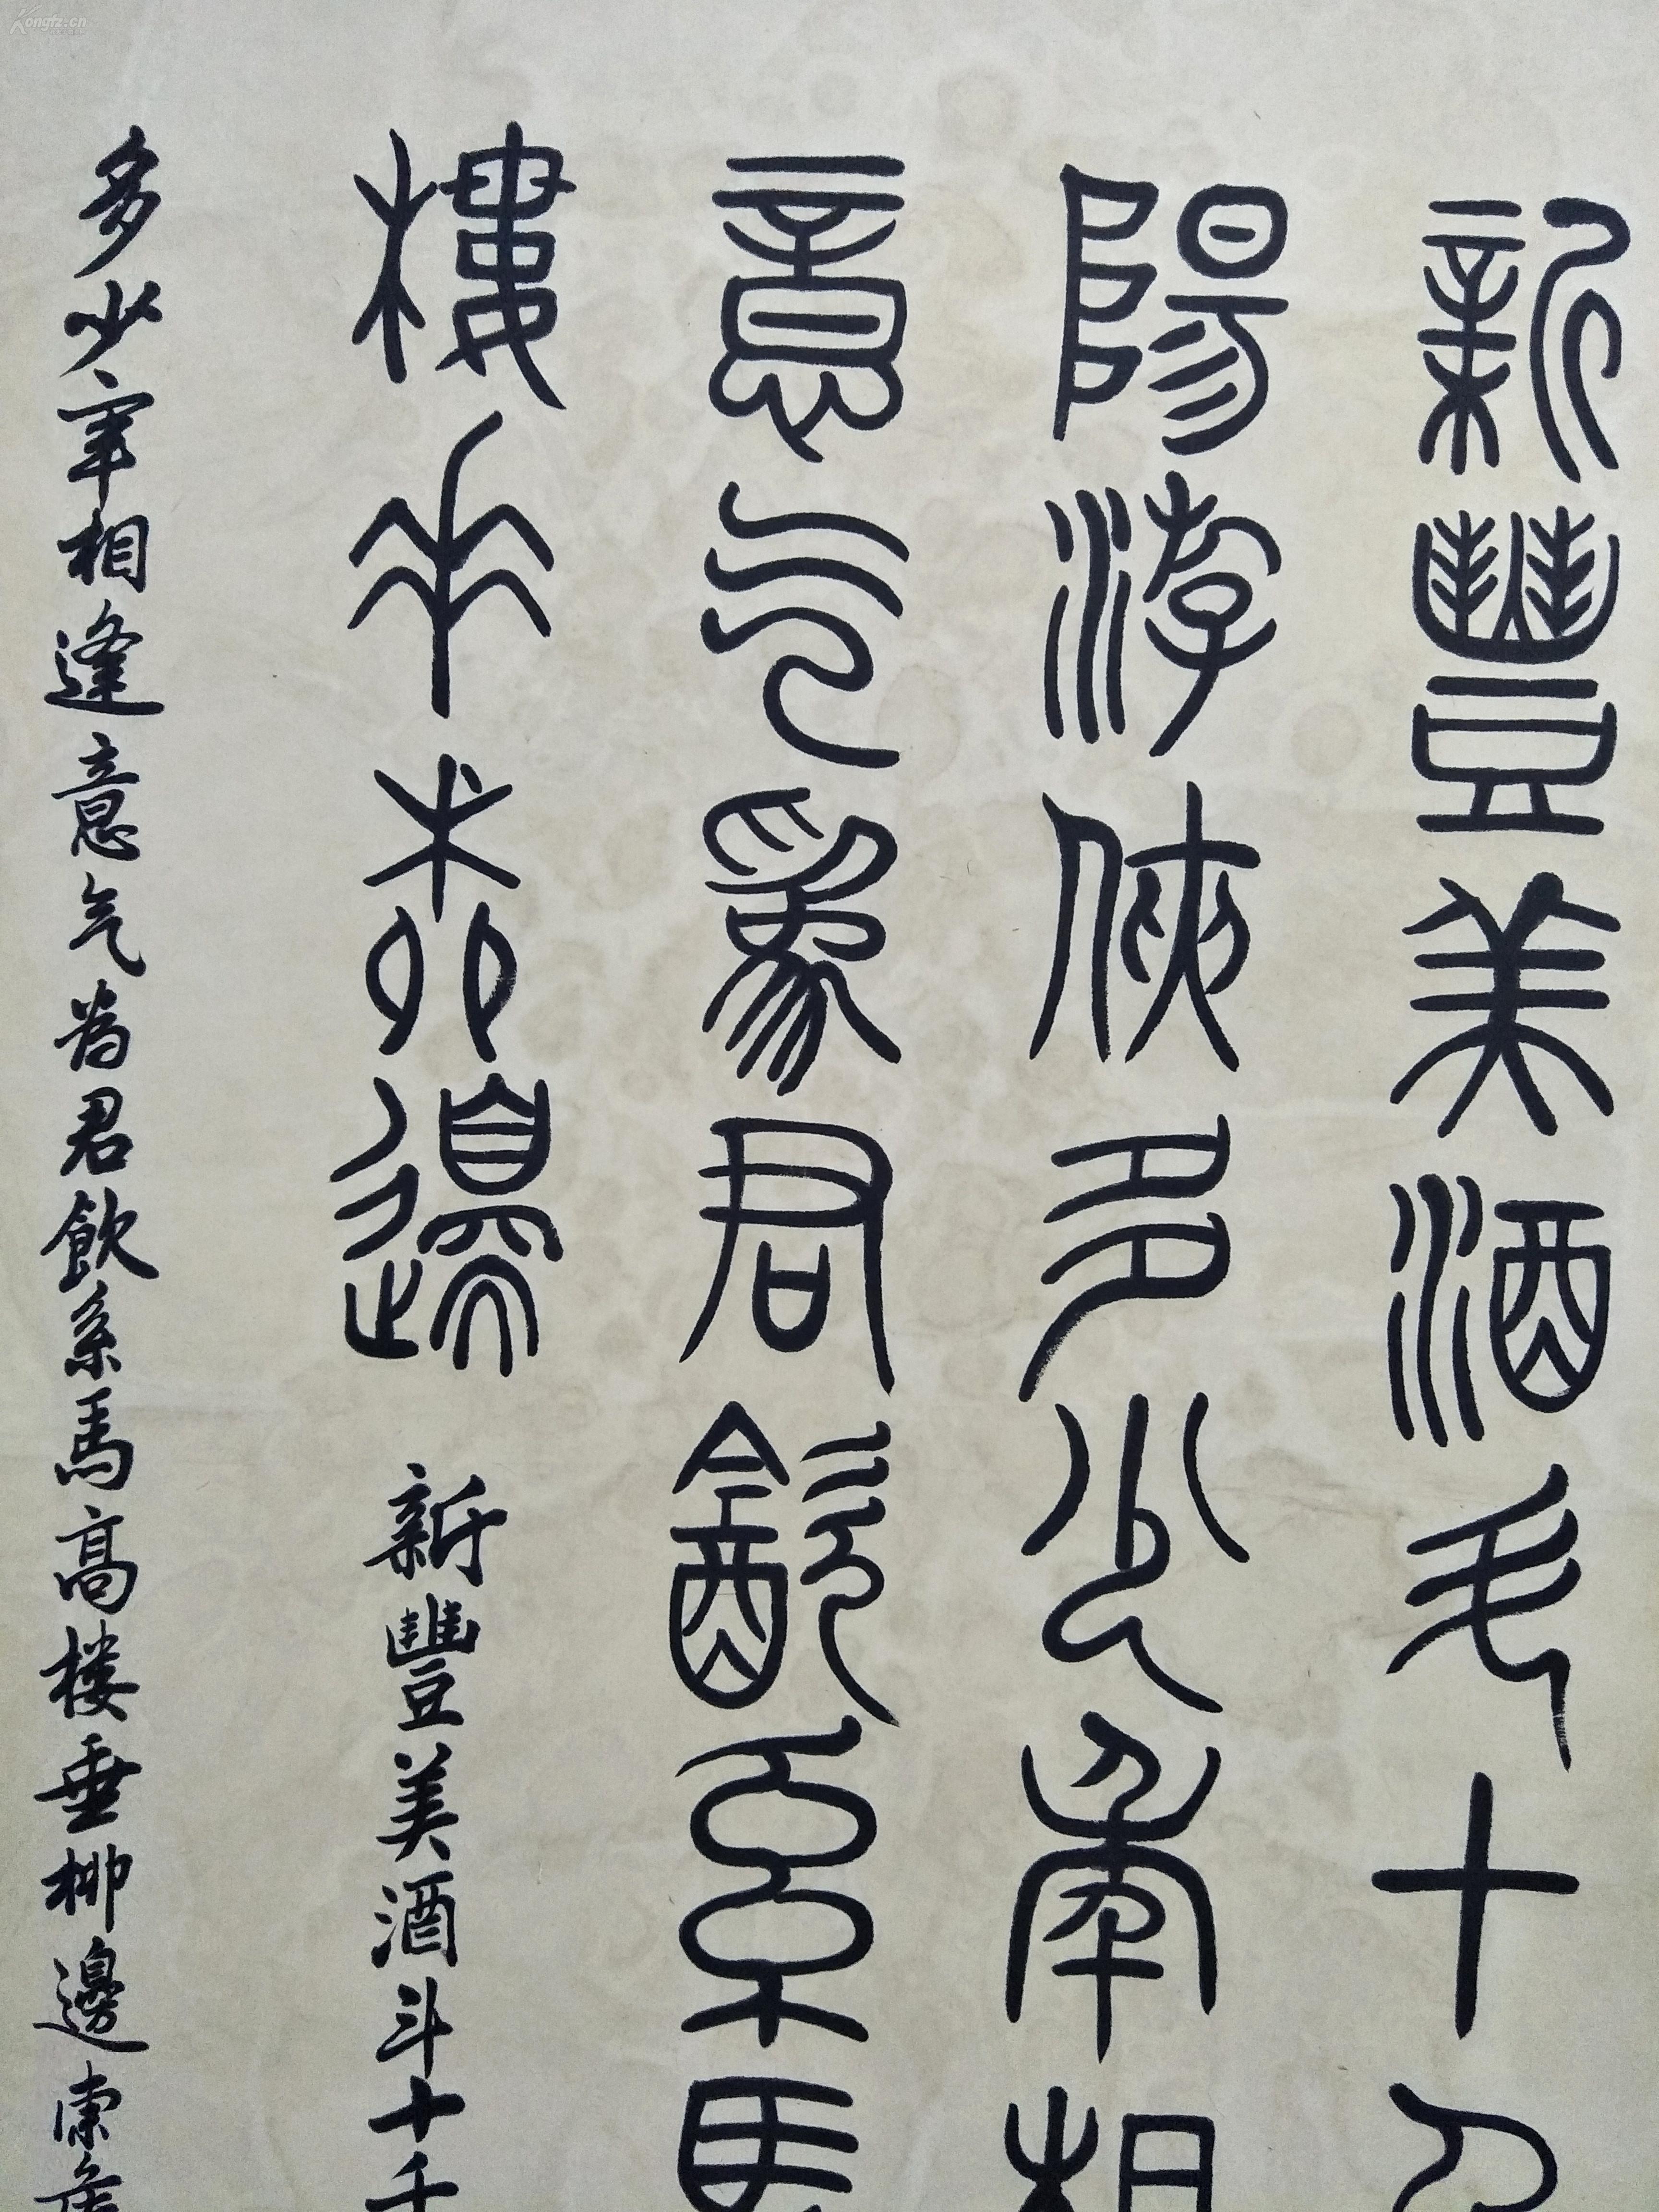 新豐美酒斗十千
陽游俠多少年相
意气為君飲系馬
樓垂柳邊
新豐美酒斗十千
多少年相逢意气為君飲系馬高楼垂柳邊
Kongfz.cn